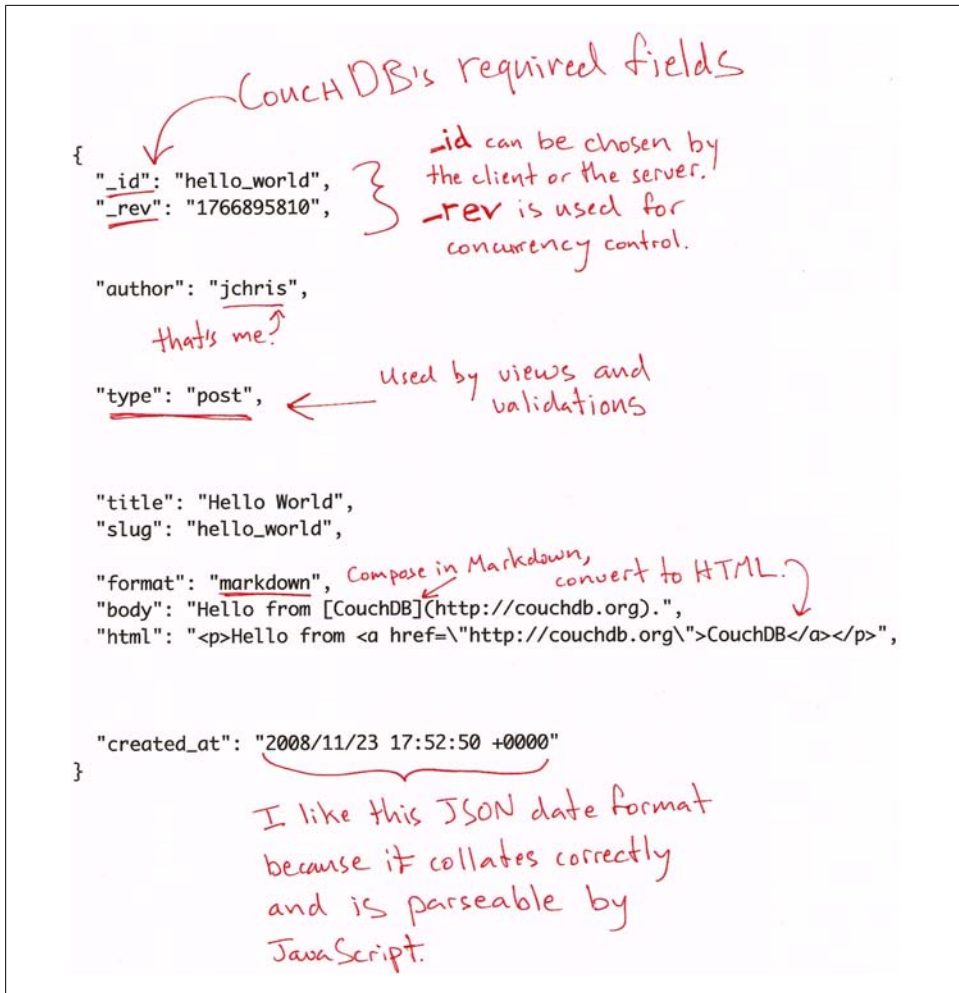 CouchDB's required fields
{
"_id": "hello_world",
"_rev": "1766895810",
_id can be chosen by
the client or the server.
_rev is used for
concurrency control.
"author": "jchris",
that's me!
"type": "post",
Used by views and
validations
"title": "Hello World",
"slug": "hello_world",
"format": "markdown",
Compose in Markdown,
convert to HTML.
"body": "Hello from [CouchDB](http://couchdb.org).",
"html": "<p>Hello from <a href=\"http://couchdb.org\">CouchDB</a></p>",
"created_at": "2008/11/23 17:52:50 +0000"
}
I like this JSON date format
because it collates correctly
and is parseable by
JavaScript.